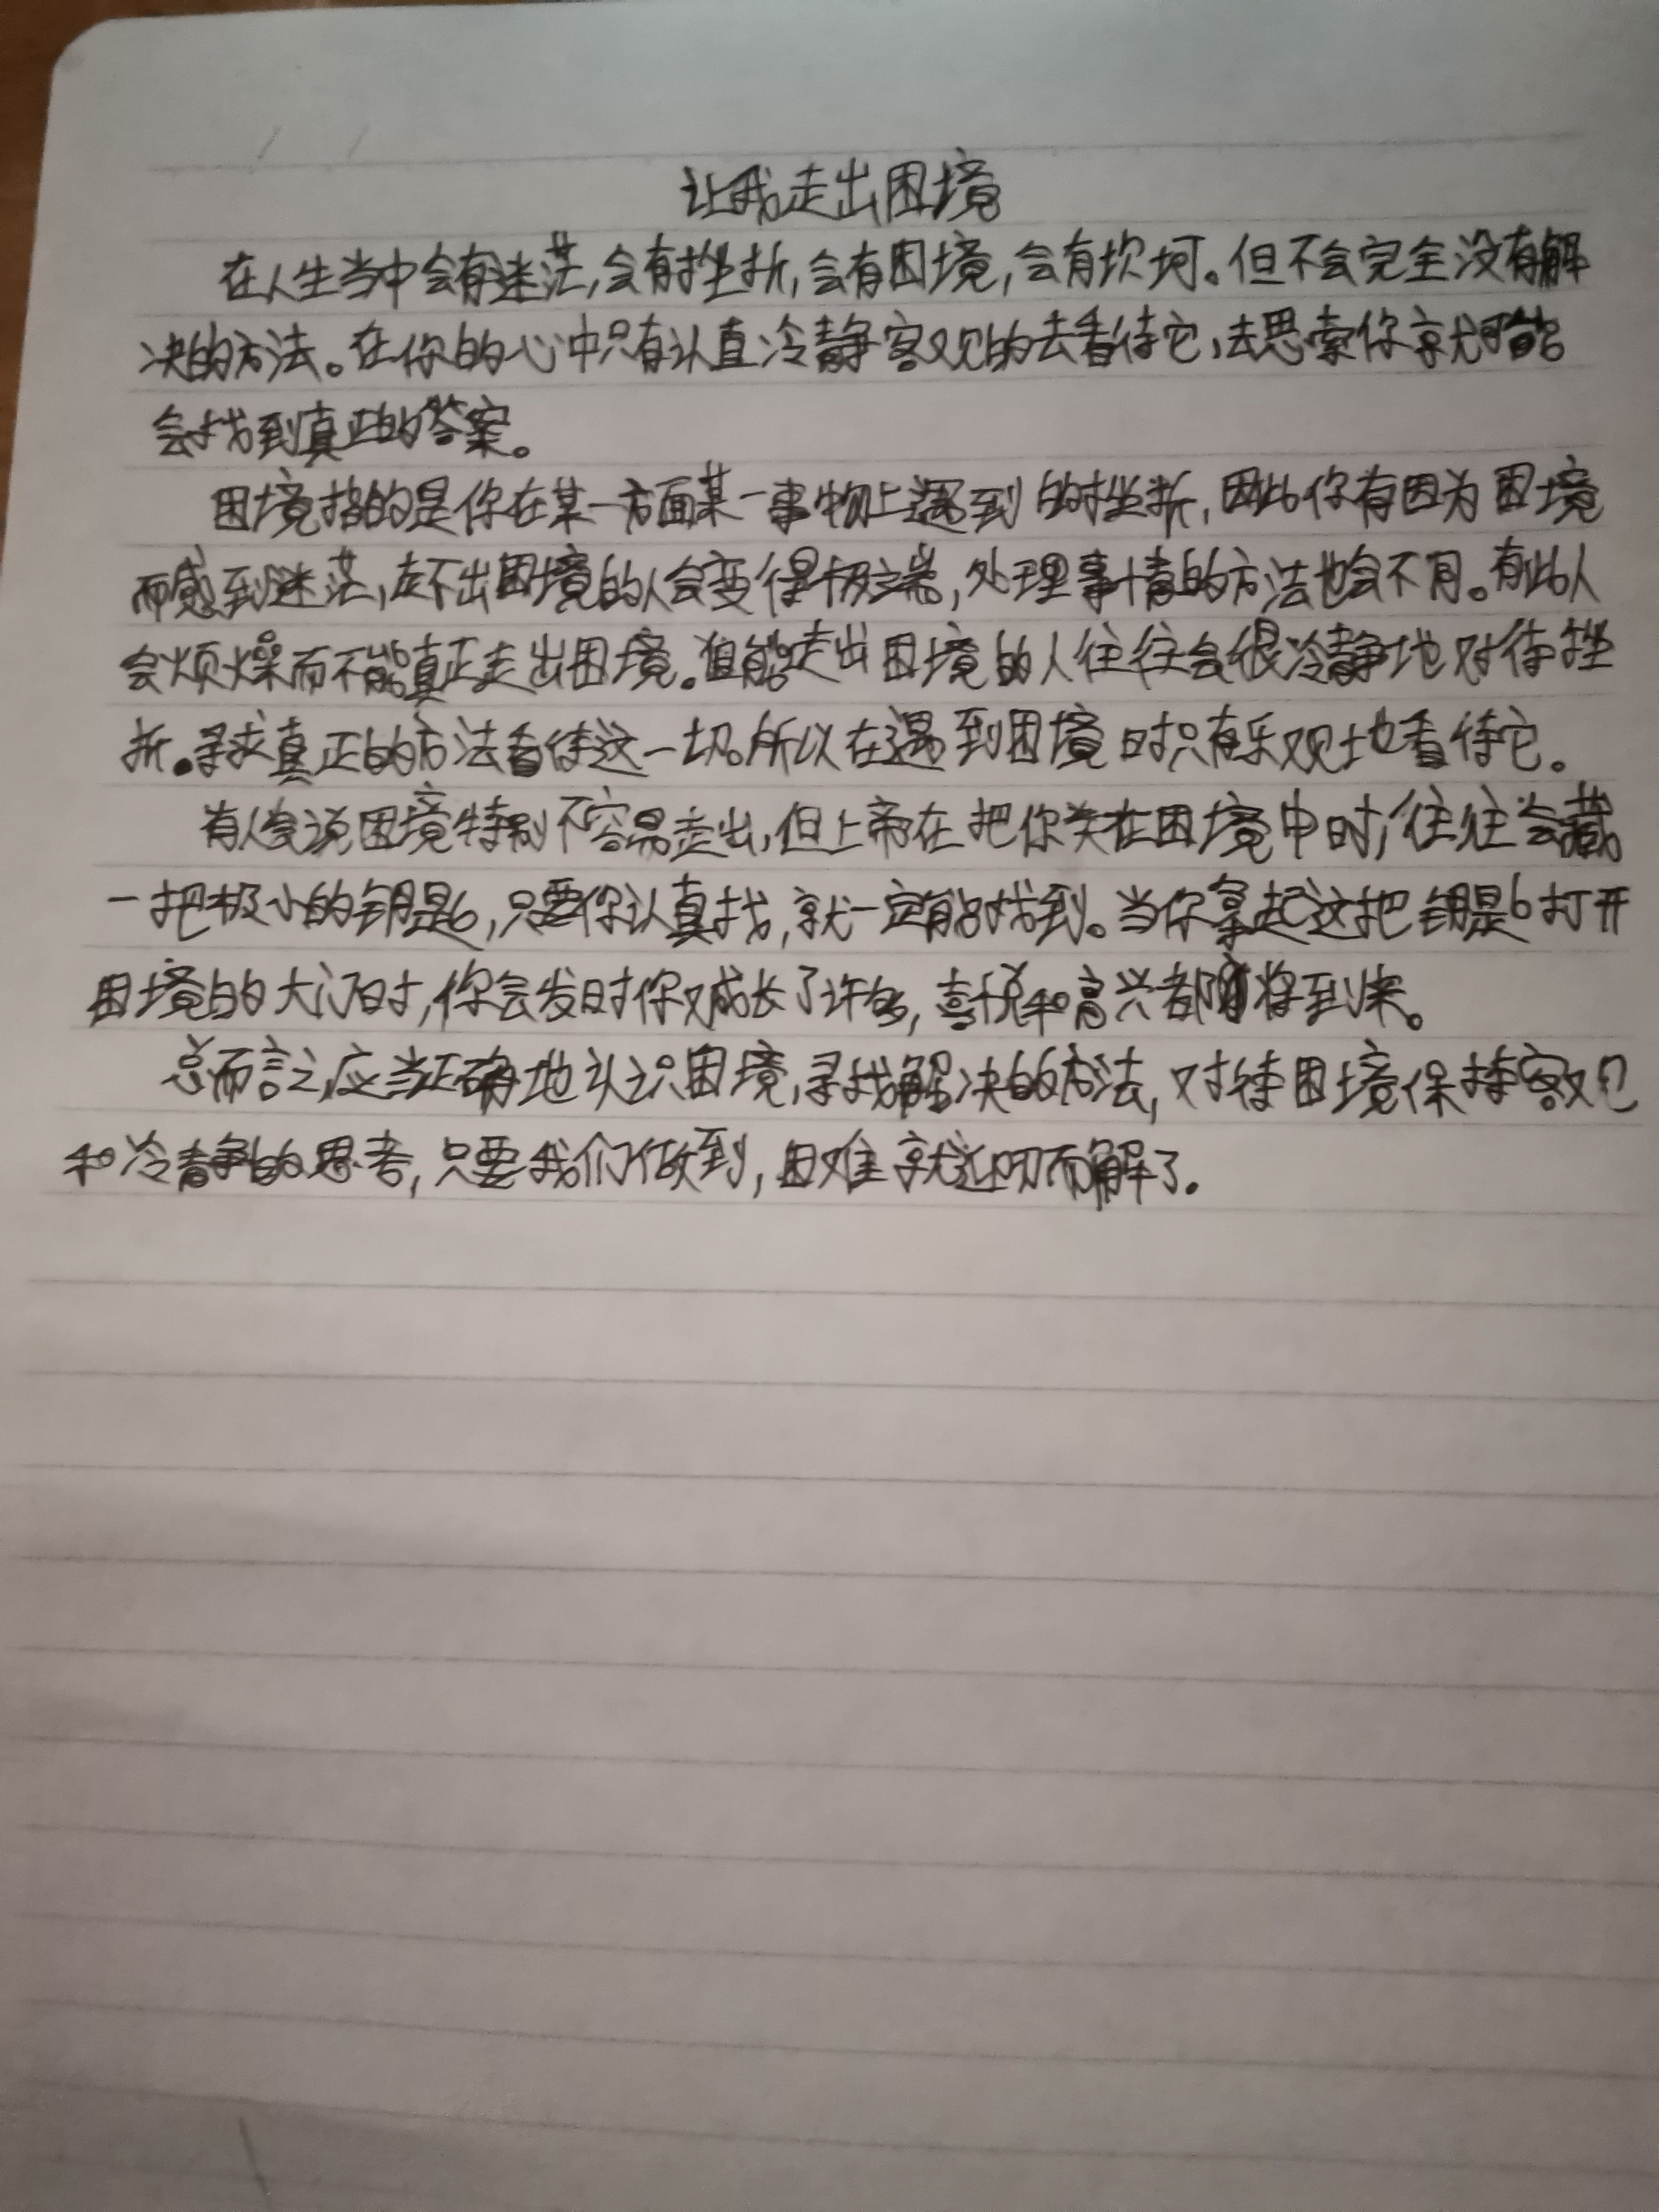 让我走出困境
在人生当中会有迷茫,会有挫折,会有困境,会有坎坷。但不会完全没有解
决的方法。在你的心中只有认真冷静客观的去看待它,去思索你就可能
会找到真正的答案。
困境指的是你在某一方面某一事物上遇到的挫折,因此你有因为困境
而感到迷茫,走不出困境的人会变得极端,处理事情的方法也会不同。有些人
会烦燥而不能真正走出困境。但能走出困境的人往往会很冷静地对待挫
折。寻求真正的方法看待这一切。所以在遇到困境时只有乐观地看待它。
有人会说困境特别不容易走出,但上帝在把你关在困境中时,往往会藏
一把极小的钥匙,只要你认真找,就一定能找到。当你拿起这把钥匙打开
困境的大门时,你会发时你又成长了许多,喜悦和高兴都将到来。
总而言之,应当正确地认识困境,寻找解决的方法,对待困境保持客观
和冷静的思考,只要我们做到,困难就迎刃而解了.